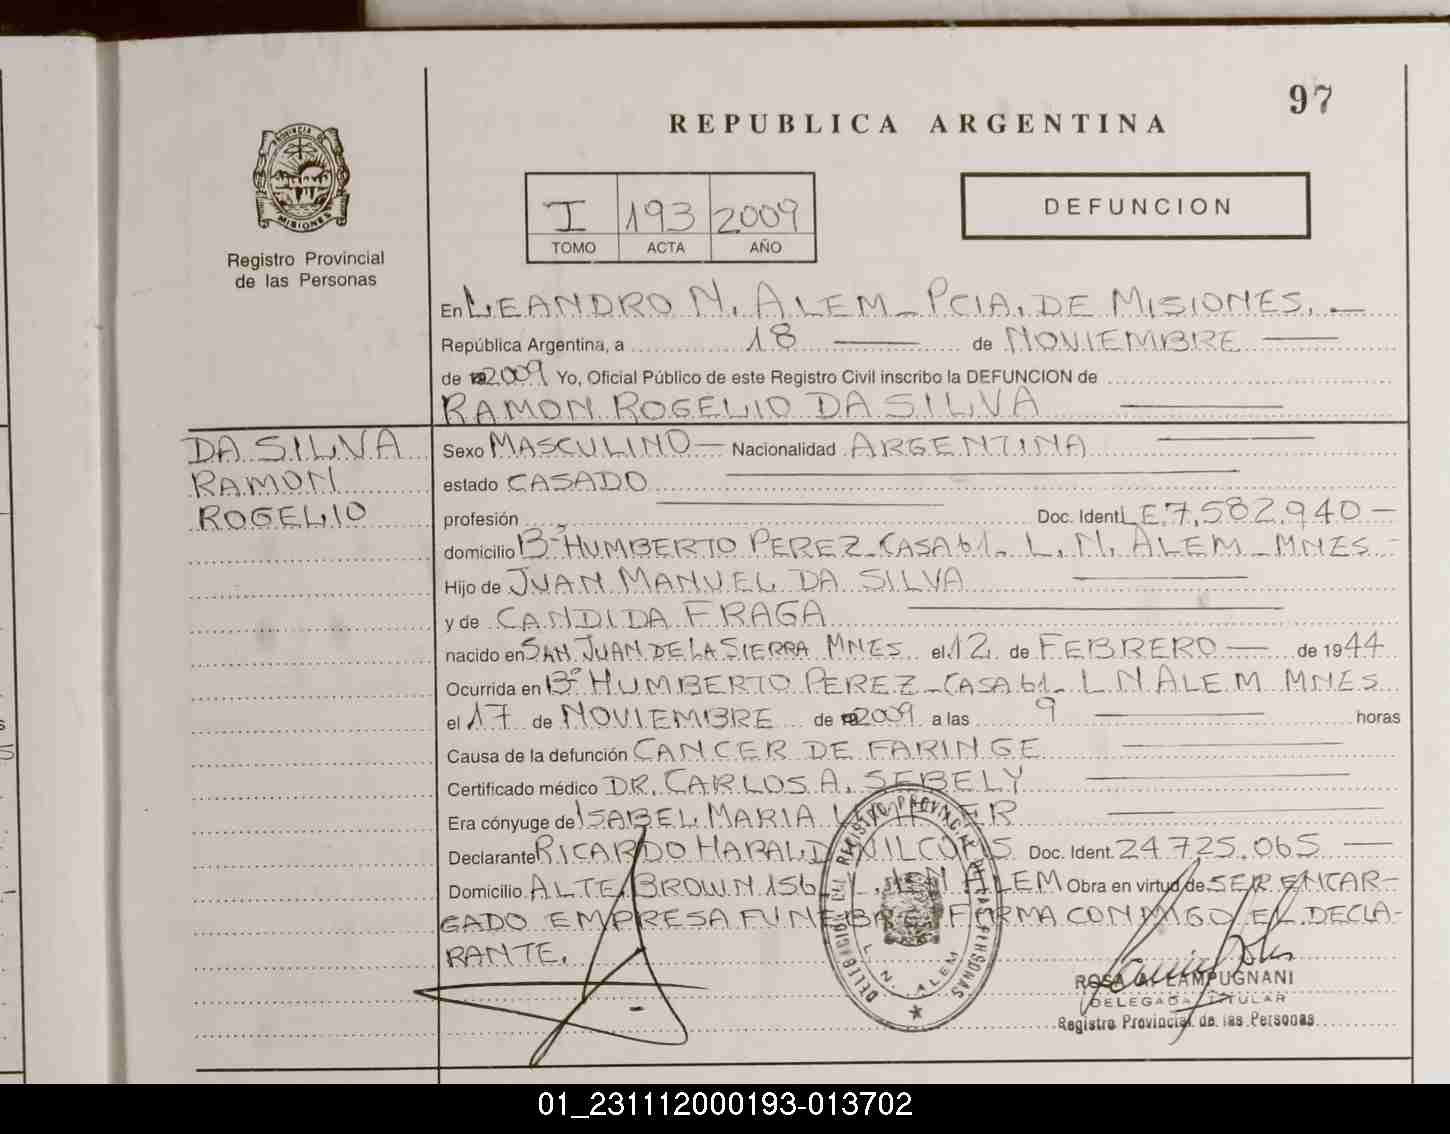 97
REPUBLICA ARGENTINA
PROVINCIA DE
MISIONES
Registro Provincial
de las Personas
I 193 2009
TOMO ACTA AÑO
DEFUNCION
En LEANDRO N. ALEM - PCIA. DE MISIONES. -
República Argentina, a 18 de NOVIEMBRE
de 2009 Yo, Oficial Público de este Registro Civil inscribo la DEFUNCION de
RAMON ROGELIO DA SILVA
DA SILVA
RAMON
ROGELIO
Sexo MASCULINO - Nacionalidad ARGENTINA
estado CASADO
profesión Doc. Ident. L.E. 7.582.940 -
domicilio Bº HUMBERTO PEREZ - CASA 61 - L. N. ALEM - MNES -
Hijo de JUAN MANUEL DA SILVA
y de CANDIDA FRAGA
nacido en SAN JUAN DE LA SIERRA MNES el 12 de FEBRERO - de 1944
Ocurrida en Bº HUMBERTO PEREZ - CASA 61 - L N ALEM MNES
el 17 de NOVIEMBRE de 2009 a las 9 horas
Causa de la defunción CANCER DE FARINGE
Certificado médico DR. CARLOS A. SEBELY
Era cónyuge de ISABEL MARIA
Declarante RICARDO HARALD Doc. Ident. 24.725.065 -
Domicilio ALTE. BROWN 156 - L. N ALEM Obra en virtud de SER ENCAR-
GADO EMPRESA FUNEBRE FIRMA CONMIGO EL DECLA-
RANTE.
DELEGACION DEL REGISTRO PROVINCIAL DE LAS PERSONAS
L. N. ALEM
ROSA A. LAMPUGNANI
DELEGADA TITULAR
Registro Provincial de las Personas
01_231112000193-013702